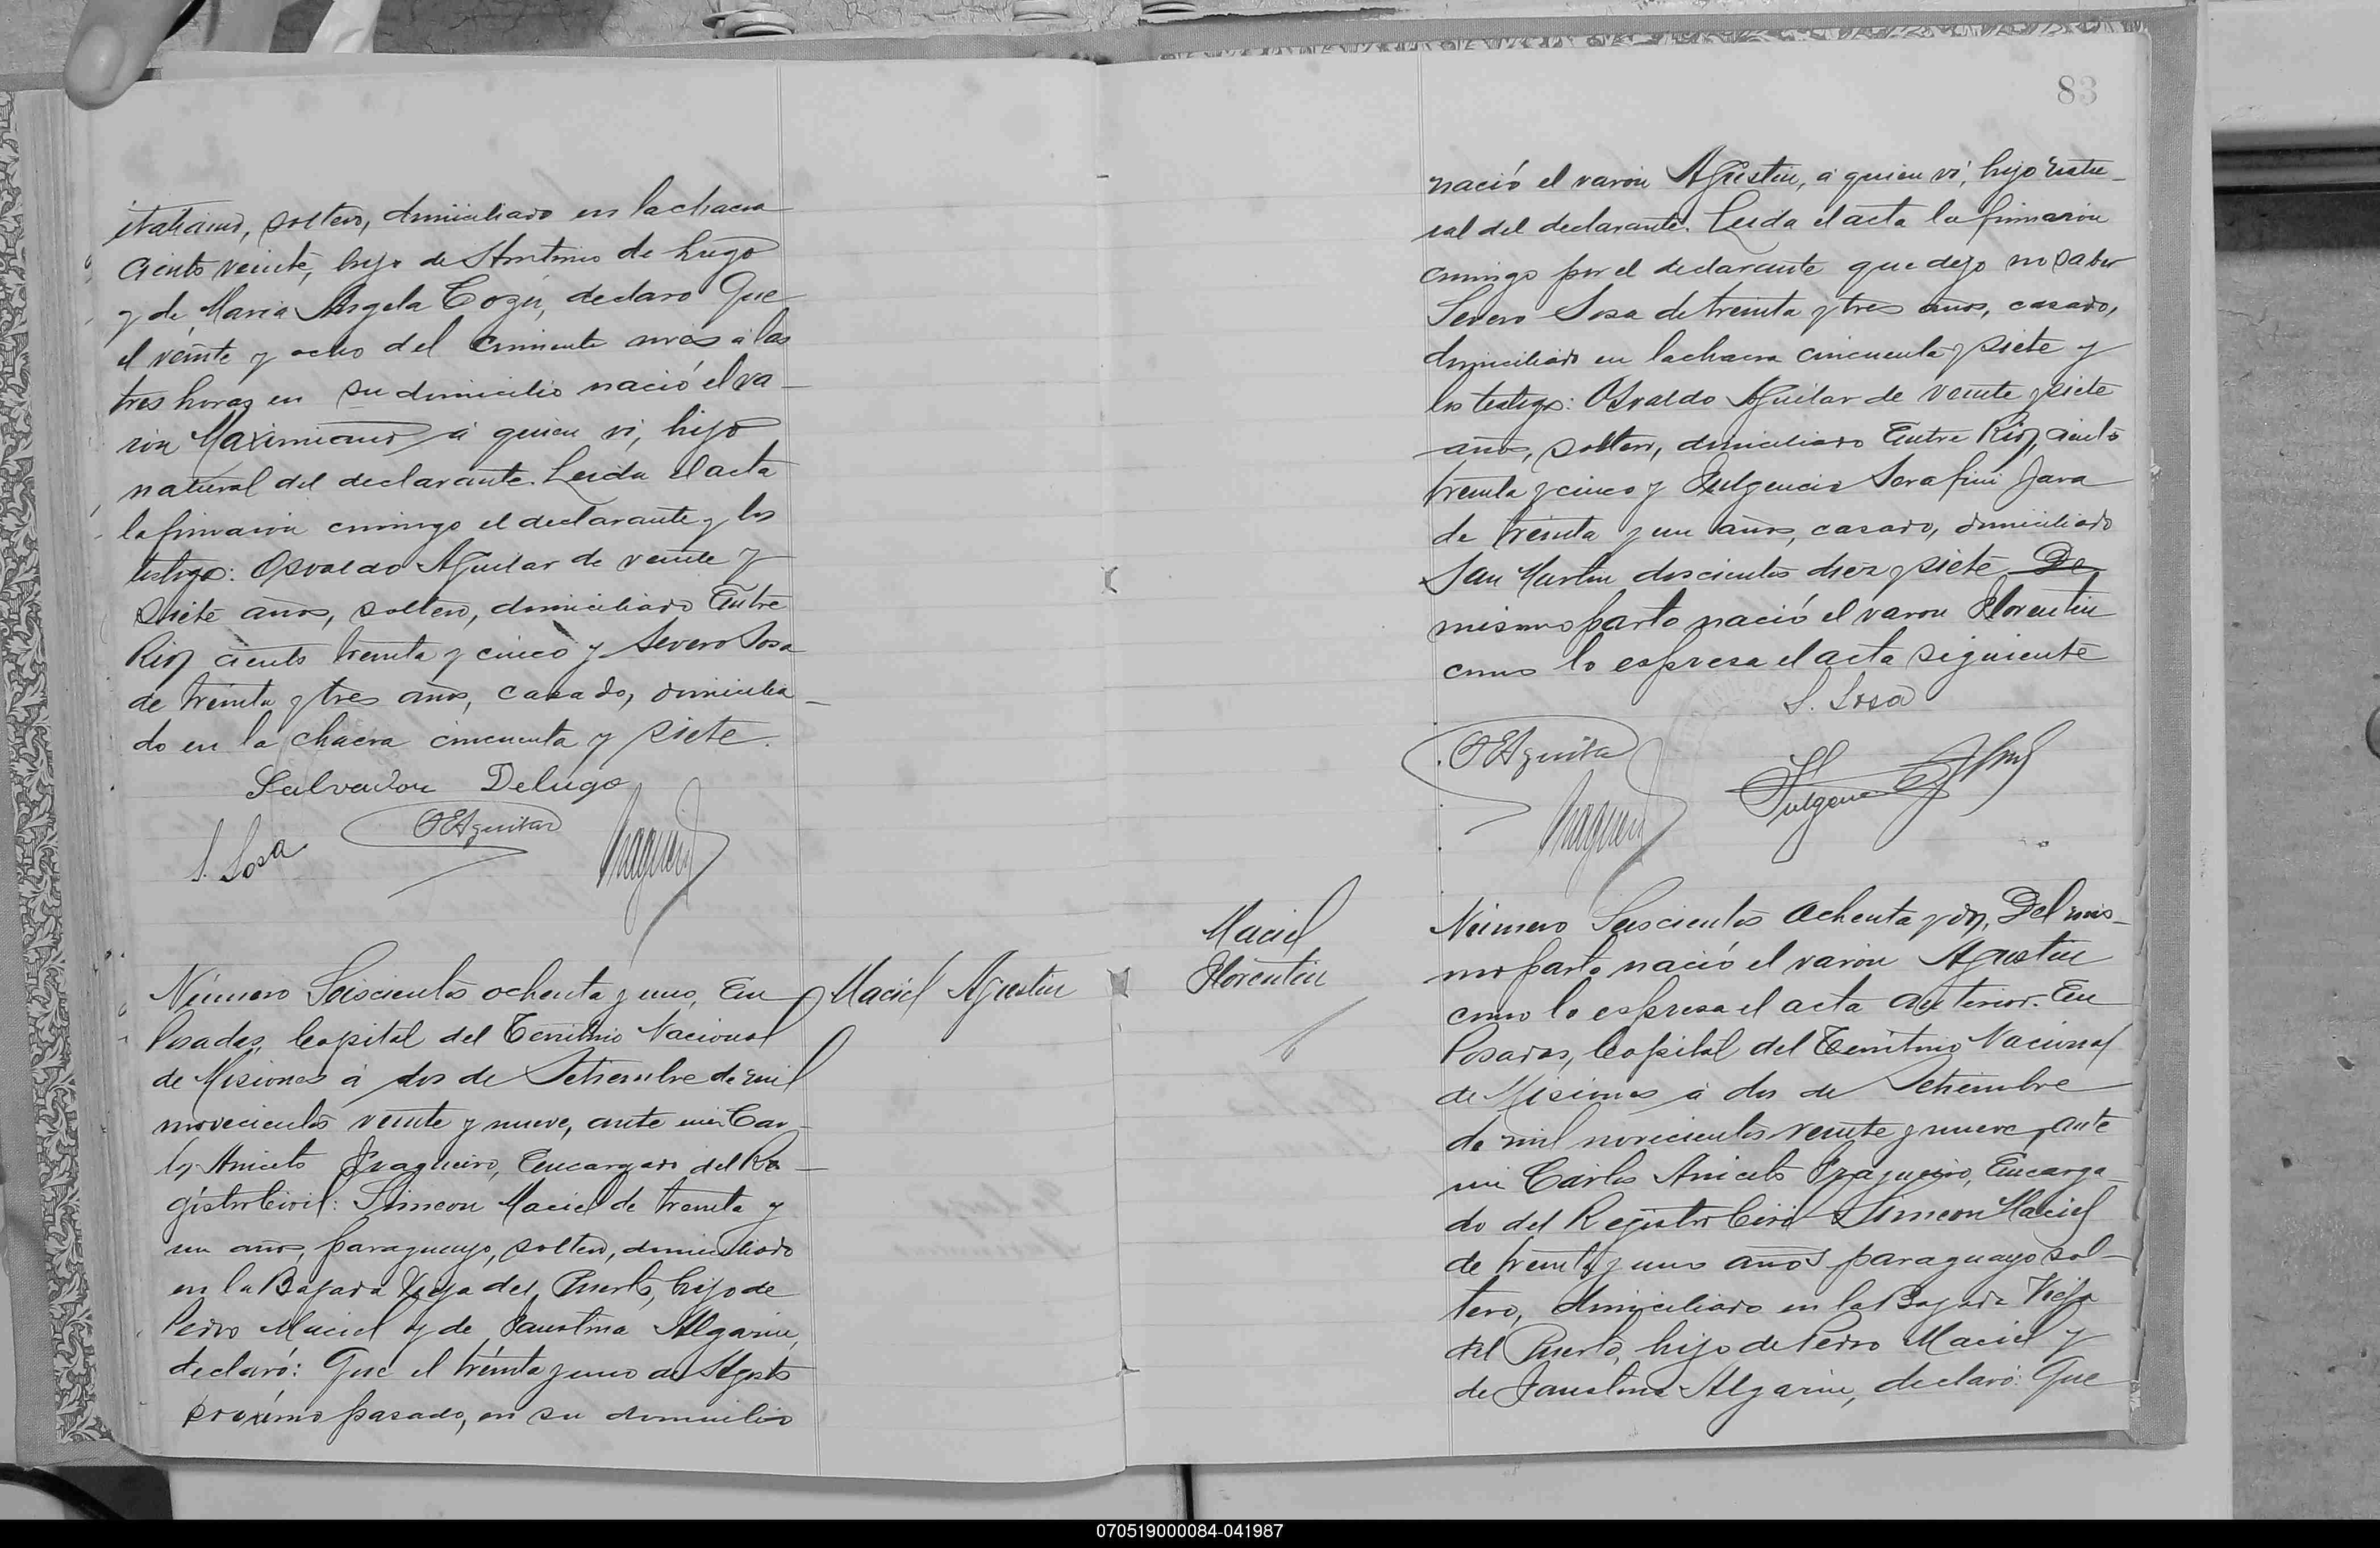 italiano, soltero, domiciliado en la chacra
ciento veinte, hijo de Antonio de Lugo
y de Maria Angela Cozú, declaró Que
el veinte y ocho del corriente mes á las
tres horas en su domicilio nació el va-
ron Maximiano á quien vi, hijo
natural del declarante. Leida el acta
la firmaron conmigo el declarante y los
testigos: Osvaldo Aguilar de veinte y
siete años, soltero, domiciliado Entre
Rios ciento treinta y cinco y Severo Sosa
de treinta y tres años, casado, domicilia-
do en la chacra cincuenta y siete.
Salvador Delugo
S. Sosa OEAguilar
Número Seiscientos ochenta y uno, En
Posadas, Capital del Territorio Nacional
de Misiones á dos de Setiembre de mil
novecientos veinte y nueve, ante mi Car-
los Aniceto Fragueiro, Encargado del Re-
gistro Civil: Simeon Maciel de treinta y
un años, paraguayo, soltero, domiciliado
en la Bajada Vieja del Puerto, hijo de
Pedro Maciel y de Faustina Algarin,
declaró: Que el treinta y uno de Agosto
proximo pasado, en su domicilio
Maciel Agustin
83
nació el varon Agustin, á quien vi, hijo natu-
ral del declarante. Leida el acta la firmaron
conmigo por el declarante que dijo no saber
Severo Sosa de treinta y tres años, casado,
domiciliado en la chacra cincuenta y siete y
los testigos: Osvaldo Aguilar de veinte y siete
años, soltero, domiciliado Entre Rios ciento
treinta y cinco y Fulgencio Serafin Jara
de treinta y un años, casado, domiciliado
San Martin doscientos diez y siete De
mismo parto nació el varon Florentin
como lo espresa el acta siguiente
S. Sosa
OEAguilar
Maciel
Florentin
Número Seiscientos Ochenta y dos, Del mis-
mo parto nació el varon Agustin
como lo espresa el acta anterior. En
Posadas, Capital del Territorio Nacional
de Misiones á dos de Setiembre
de mil novecientos veinte y nueve, ante
mi Carlos Aniceto Fragueiro, Encarga-
do del Registro Civil Simeon Maciel
de treinta y uno años paraguayo sol-
tero, domiciliado en la Bajada Vieja
del Puerto, hijo de Pedro Maciel y
de Faustina Algarin, declaró: Que
070519000084-041987